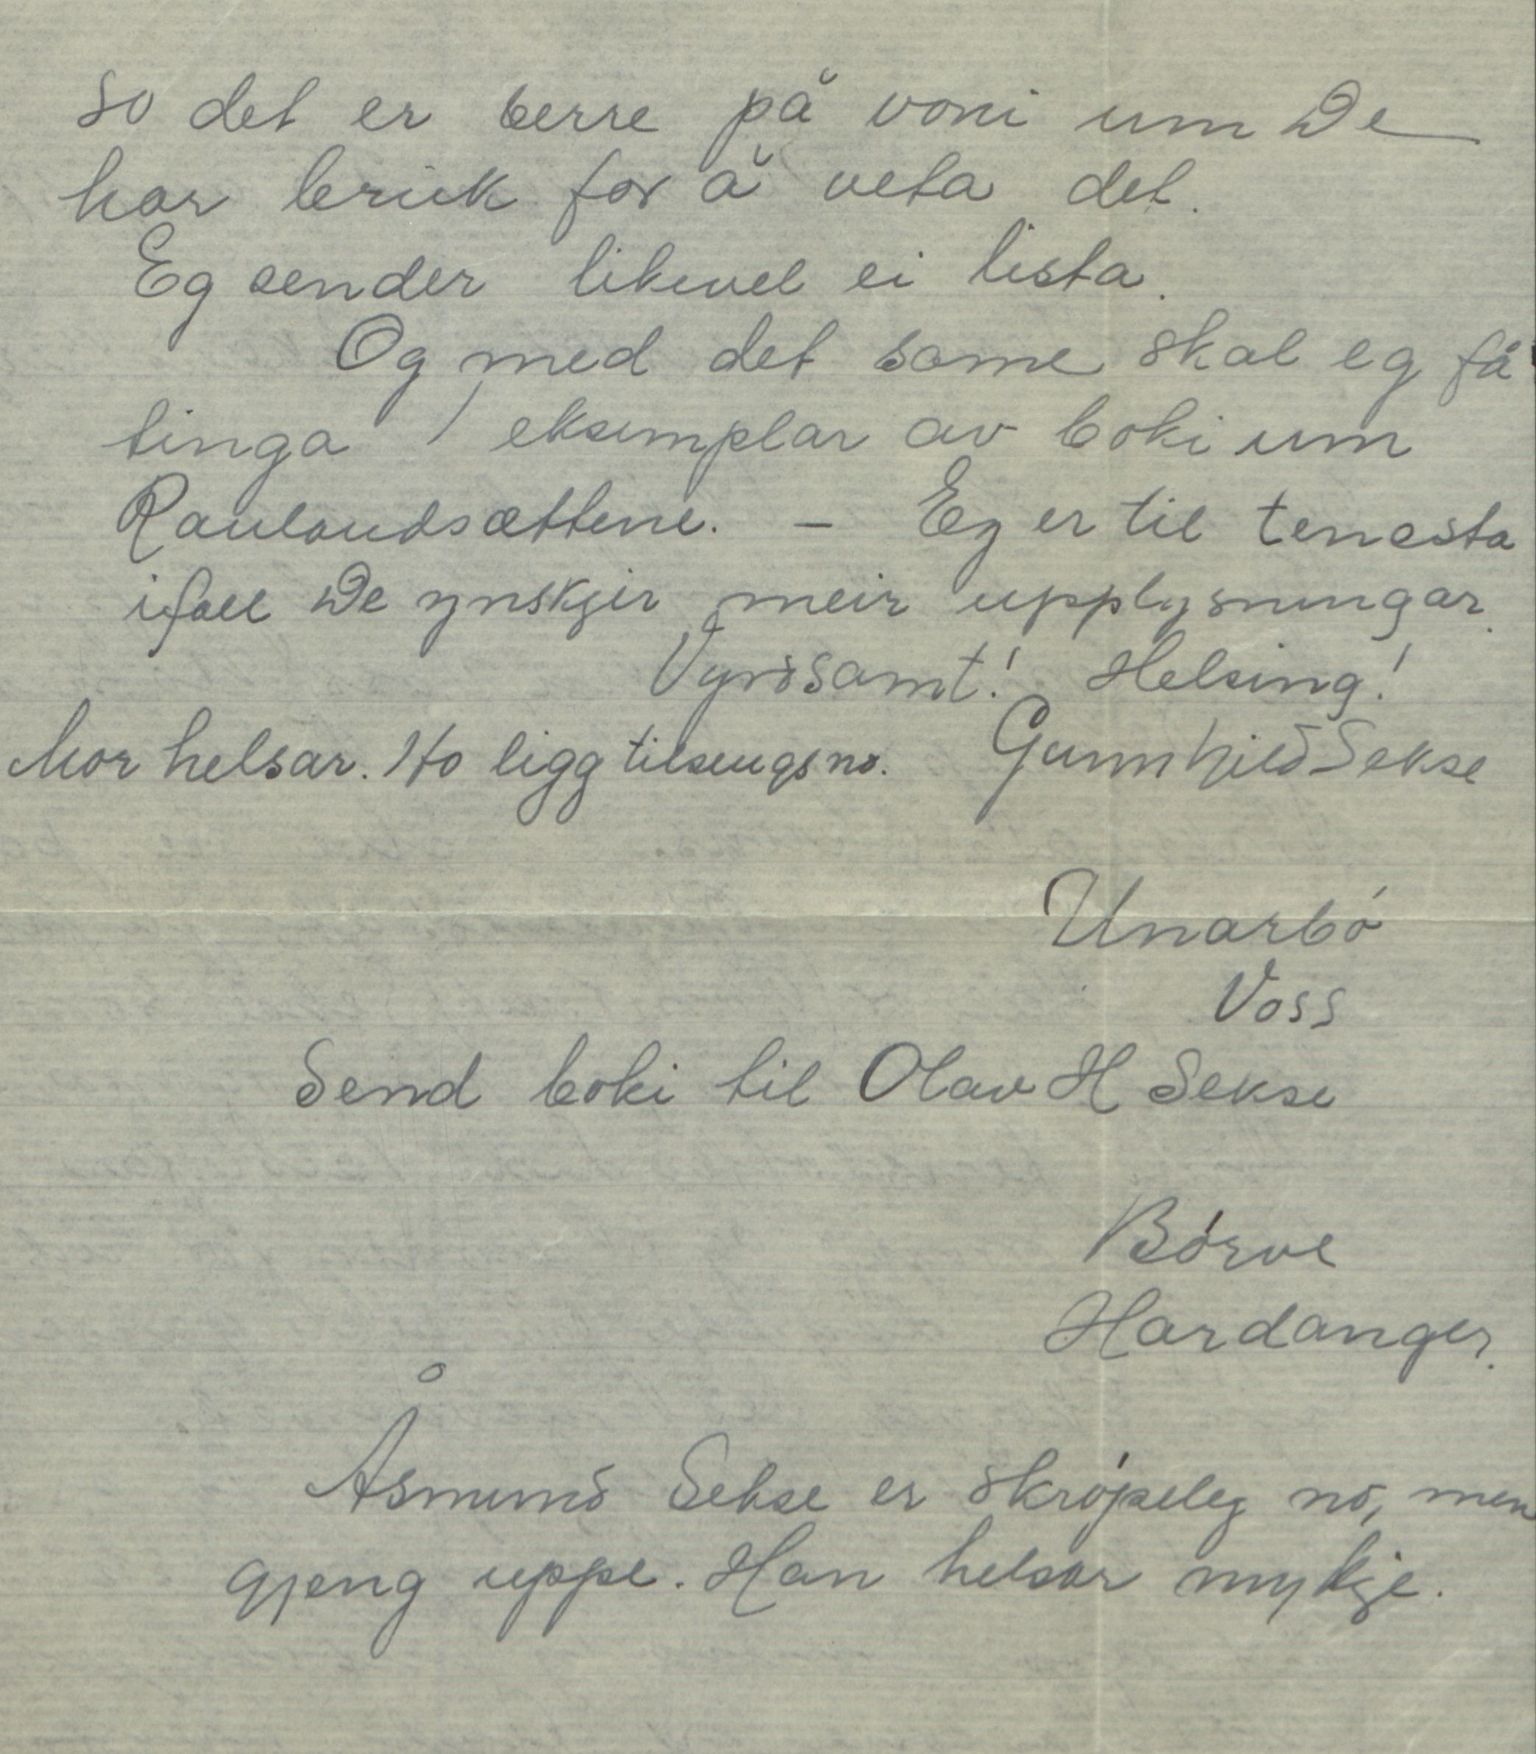 so det er berre på voni um De
har bruk for å veta det.
Eg sender likevel ei lista.
Og med det same skal eg få
tinga 1 eksemplar av boki um
Raulandsættene. – Eg er til tenesta
ifall De ynskjer meir upplysningar.
Vyrdsamt! Helsing!
Mor helsar. Ho ligg tilsengs no. Gunnhild Sekse
Unarbó
Voss
Send boki til Olav H Sekse
Bórve
Hardanger.
Åsmund Sekse er skrópeleg no, men
gjeng uppe. Han helsar mykje.